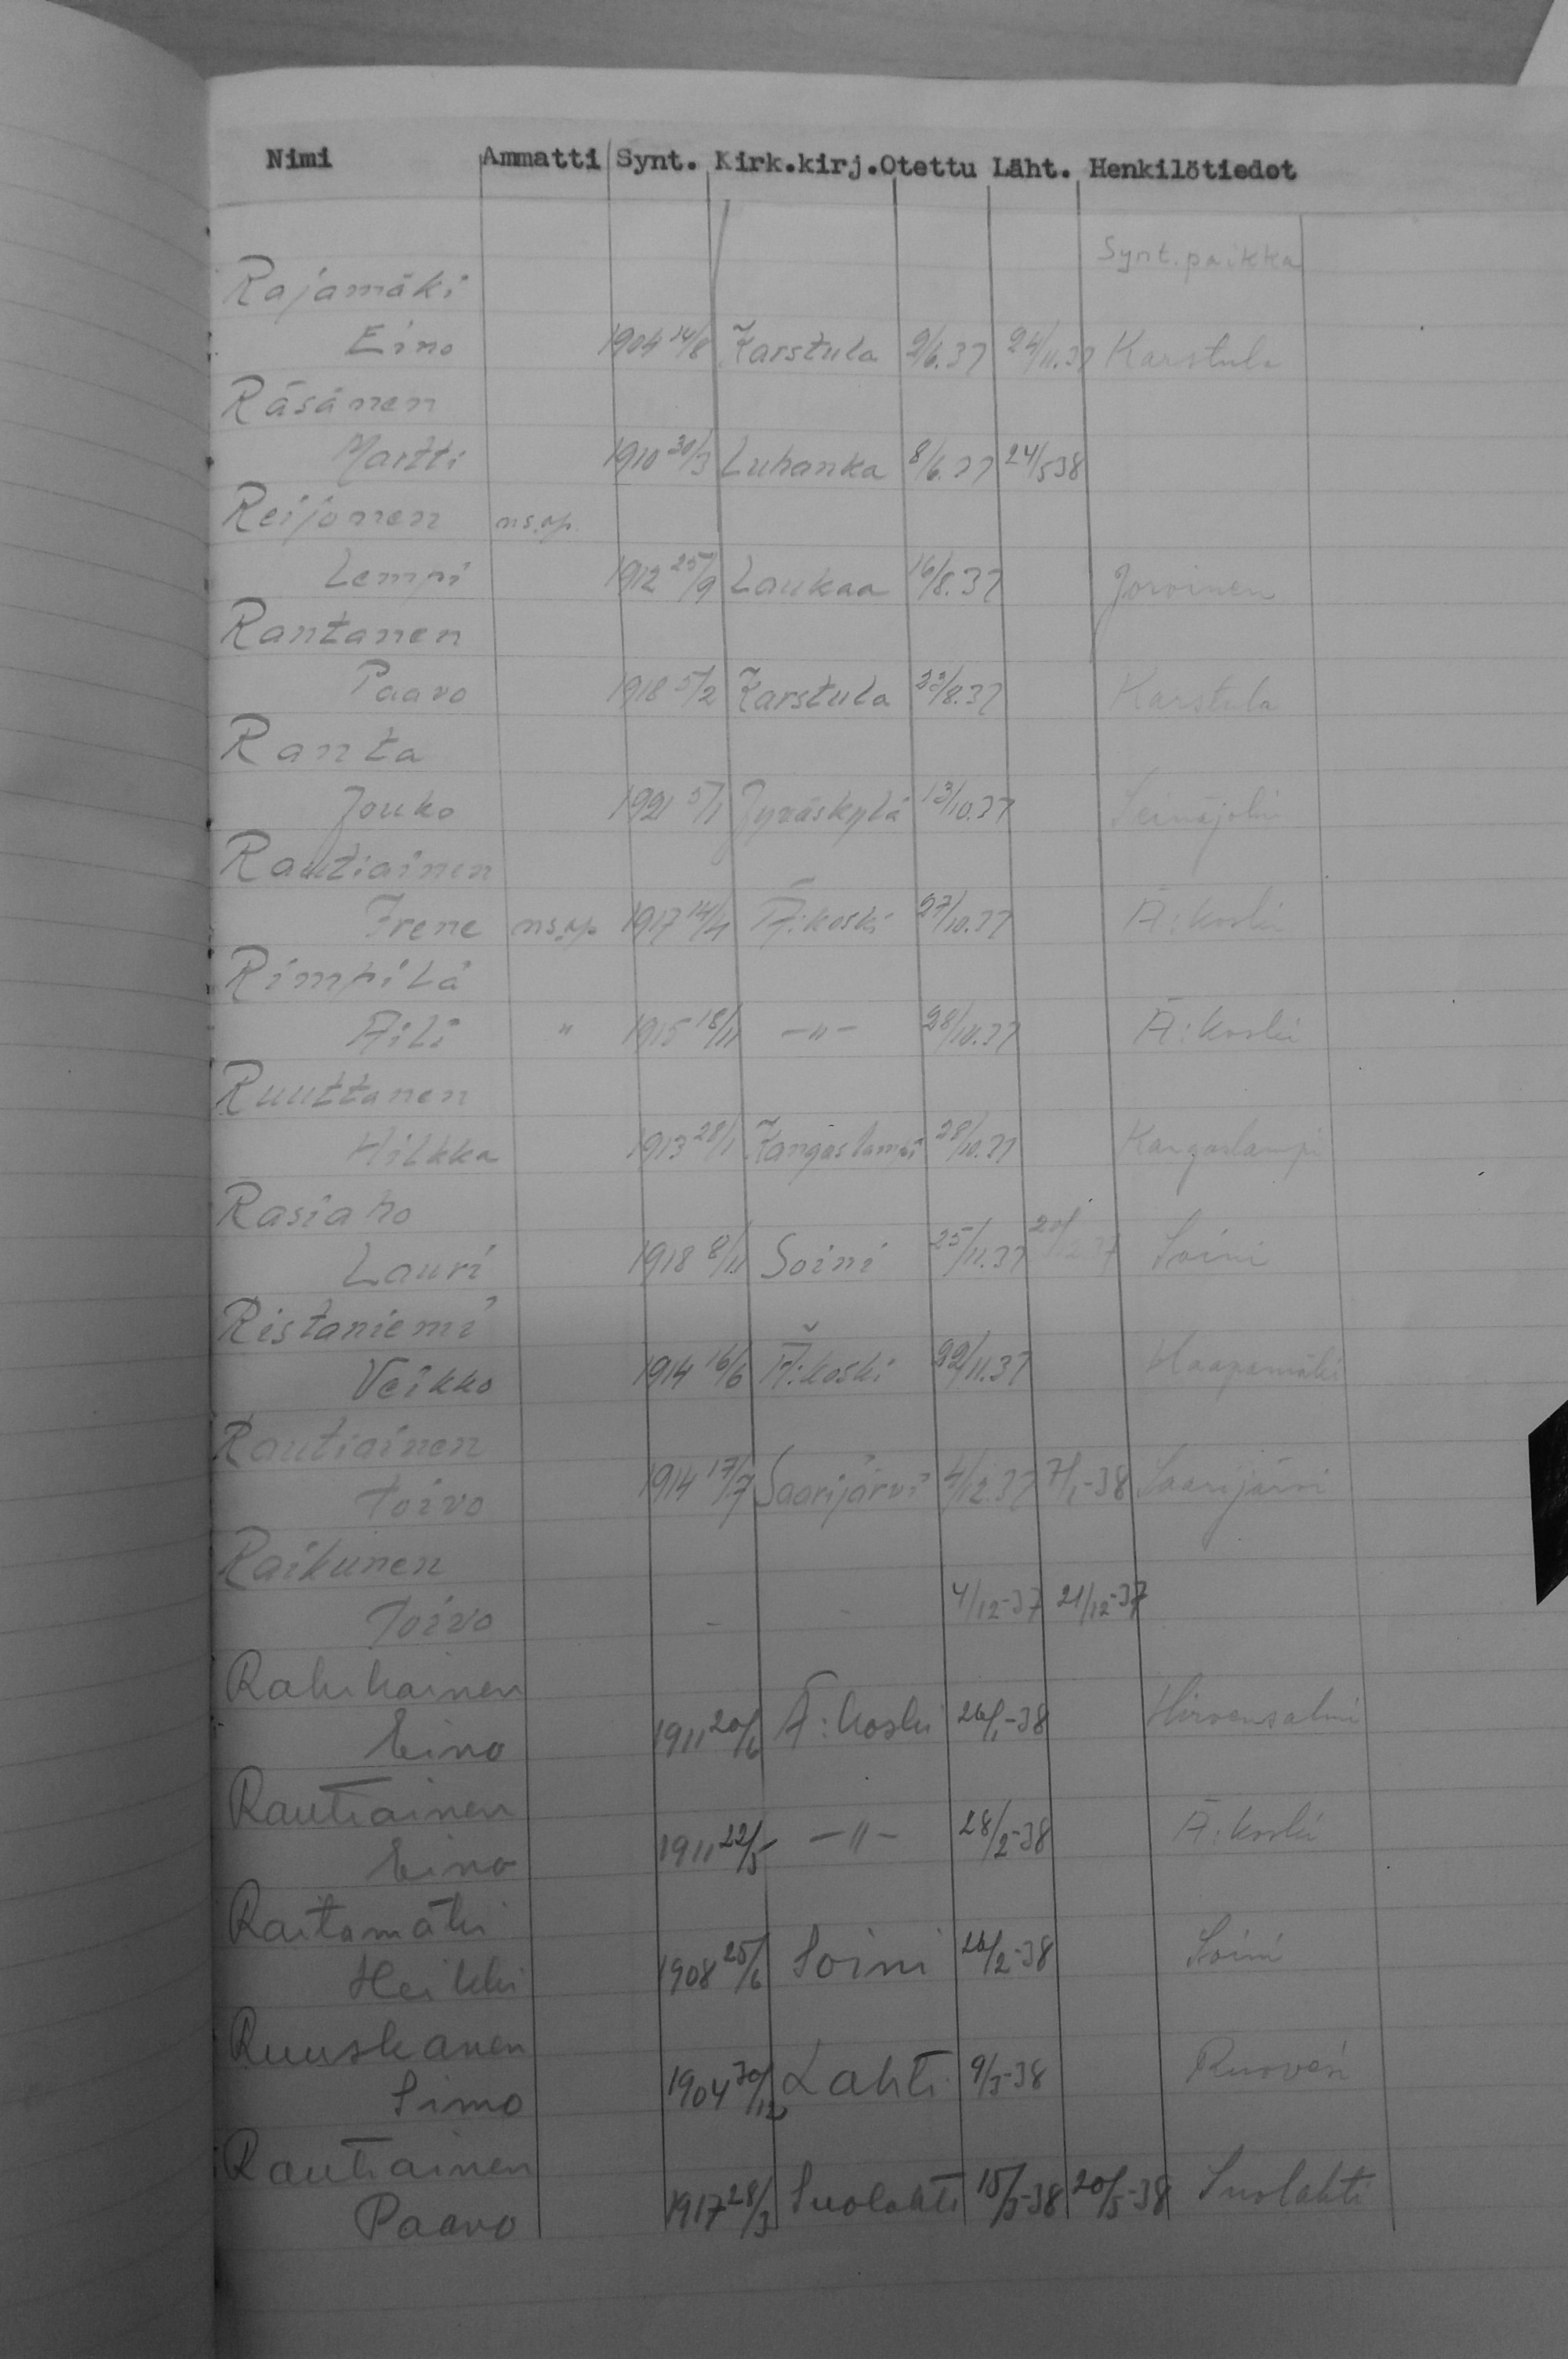 Nimi Ammatti Synt. Kirk.kirj. Otettu Läht. Henkilötiedot
Synt.paikka
Rajamäki
Eino 1904 14/8 Karstula 9/6.37 24/11.37 Karstula
Räsänen
Martti 1910 30/3 Luhanka 8/6.37 24/5 38
Reijonen ns.ap.
Lempi 1912 25/9 Laukaa 16/8.37 Joroinen
Rantanen
Paavo 1918 5/2 Karstula 23/8.37 Karstula
Ranta
Jouko 1921 5/1 Jyväskylä 13/10.37 Seinäjoki
Rautiainen
Irene ns.ap 1917 14/4 Ä:koski 27/10.37 Ä:koski
Rimpilä
Aili " 1915 18/11 -"- 28/10.37 Ä:koski
Ruuttanen
Hilkka 1913 28/1 Kangaslampi 28/10.37 Kangaslampi
Rasiaho
Lauri 1918 8/11 Soini 25/11.37 Soini
Ristaniemi
Veikko 1914 16/6 Ä:koski 22/11.37 Haapamäki
Rautiainen
Toivo 1914 17/7 Saarijärvi 4/12.37 7/1-38 Saarijärvi
Raikunen
Toivo - - 4/12-37 21/12-37
Rahikainen
Eino 1911 20/6 Ä:koski 26/1-38 Hirvensalmi
Rautiainen
Eino 1911 22/5 -"- 28/2-38 Ä:koski
Raitamäki
Heikki 1908 25/6 Soini 26/2-38 Soini
Ruuskanen
Simo 1904 30/12 Lahti 9/3-38 Ruovesi
Rautiainen
Paavo 1917 28/3 Suolahti 15/3-38 20/5-38 Suolahti